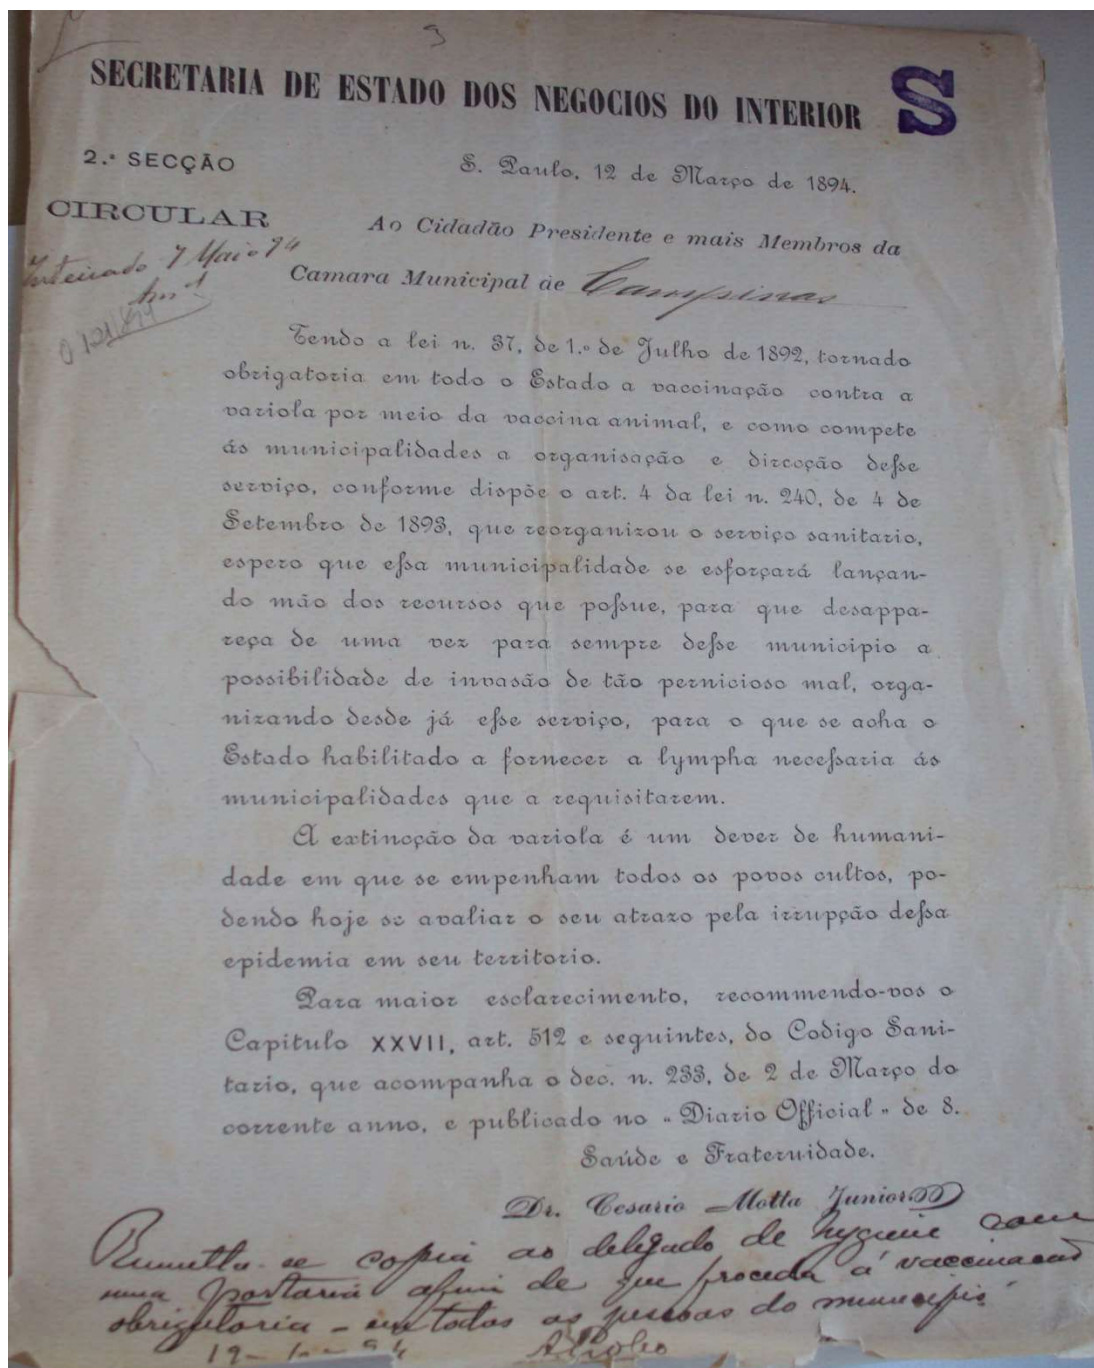 9
SECRETARIA DE ESTADO DOS NEGOCIOS DO INTERIOR S
2.ª SECÇÃO
S. Paulo, 12 de Março de 1894.
CIRCULAR
Ao Cidadão Presidente e mais Membros da
Inteirado 7 Maio 94
Camara Municipal de Campinas
Tendo a lei n. 37, de 1.º de Julho de 1892, tornado
obrigatoria em todo o Estado a vaccinação contra a
variola por meio da vaccina animal, e como compete
ás municipalidades a organisação e direcção desse
serviço, conforme dispõe o art. 4 da lei n. 240, de 4 de
Setembro de 1893, que reorganizou o serviço sanitario,
espero que essa municipalidade se esforçará lançan-
do mão dos recursos que possue, para que desappa-
reça de uma vez para sempre desse municipio a
possibilidade de invasão de tão pernicioso mal, orga-
nizando desde já esse serviço, para o que se acha o
Estado habilitado a fornecer a lympha necessaria ás
municipalidades que a requisitarem.
A extincção da variola é um dever de humani-
dade em que se empenham todos os povos cultos, po-
dendo hoje se avaliar o seu atrazo pela irrupção dessa
epidemia em seu territorio.
Para maior esclarecimento, recommendo-vos o
Capitulo XXVII, art. 512 e seguintes, do Codigo Sani-
tario, que acompanha o dec. n. 233, de 2 de Março do
corrente anno, e publicado no "Diario Official" de 8.
Saúde e Fraternidade.
Dr. Cesario Motta Junior
Remetta-se copia ao delegado de hygiene com
uma portaria afim de que proceda á vaccinacão
obrigatoria - em todas as pessoas do municipio